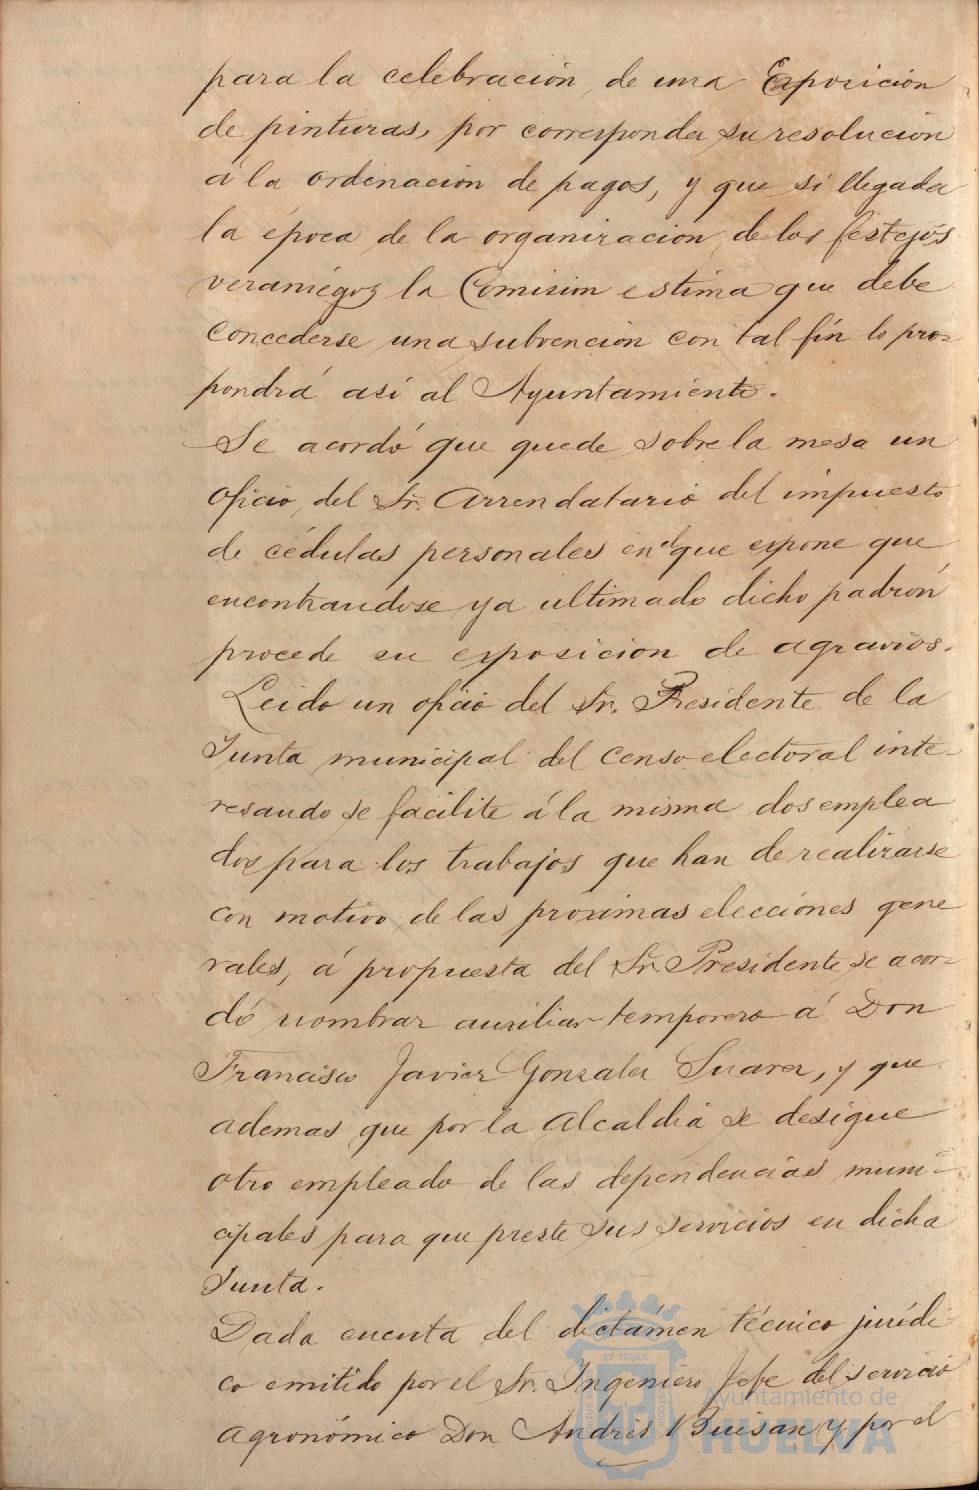 para la celebración de una Exposición
de pinturas, por corresponder su resolucion
á la ordenacion de pagos, y que si llegada
la época de la organizacion de los festejos
veraniegos la Comision estima que debe
concederse una subvencion con tal fín lo pro-
pondrá asi al Ayuntamiento.
Se acordó que quede sobre la mesa un
oficio del Sr. Arrendatario del impuesto
de cédulas personales en el que expone que
encontrandose ya ultimado dicho padrón
procede su exposicion de agravios.
Leido un oficio del Sr. Presidente de la
Junta municipal del censo electoral inte-
resando se facilite á la misma dos emplea
dos para los trabajos que han de realizarse
con motivo de las proximas elecciónes gene
rales, á propuesta del Sr. Presidente se acor-
dó nombrar auxiliar temporero á Don
Francisco Javier Gonzalez Suarez, y que
ademas que por la Alcaldia se desigue
otro empleado de las dependencias muni-
cipales para que preste sus servicios en dicha
Junta.
Dada cuenta del dictámen técnico jurídi
co emitido por el Sr. Ingeniero Jefe del servicio
agronómico Don Andrés Buisan y por el
ET TERRA
Ayuntamiento de
HUELVA